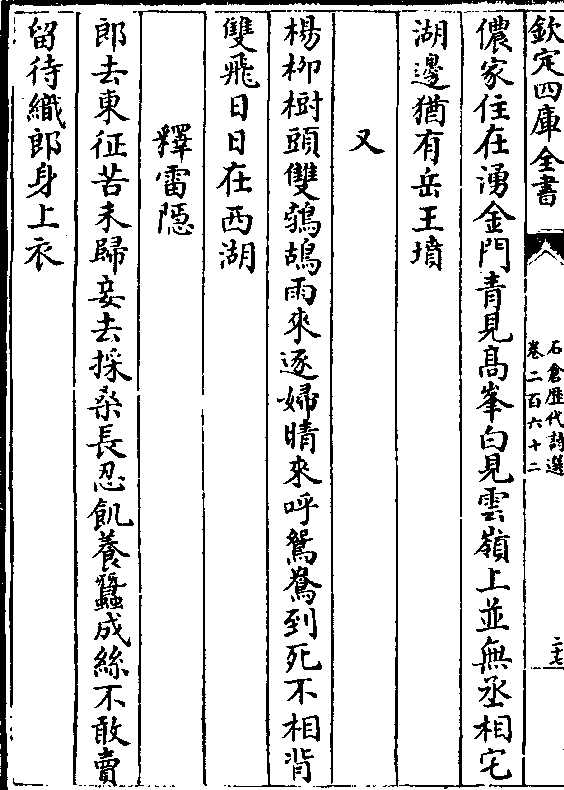 欽定四庫全書
石倉歴代詩選
卷二百六十二
二七
儂家住在湧金門青見髙峯白見雲嶺上並無丞相宅
湖邊猶有岳王墳
又
楊栁樹頭雙鵓鴣雨來逐婦晴來呼鴛鴦到死不相背
雙飛日日在西湖
釋雷隱
郎去東征苦未歸妾去採桑長忍飢養蠶成絲不敢賣
留待織郎身上衣